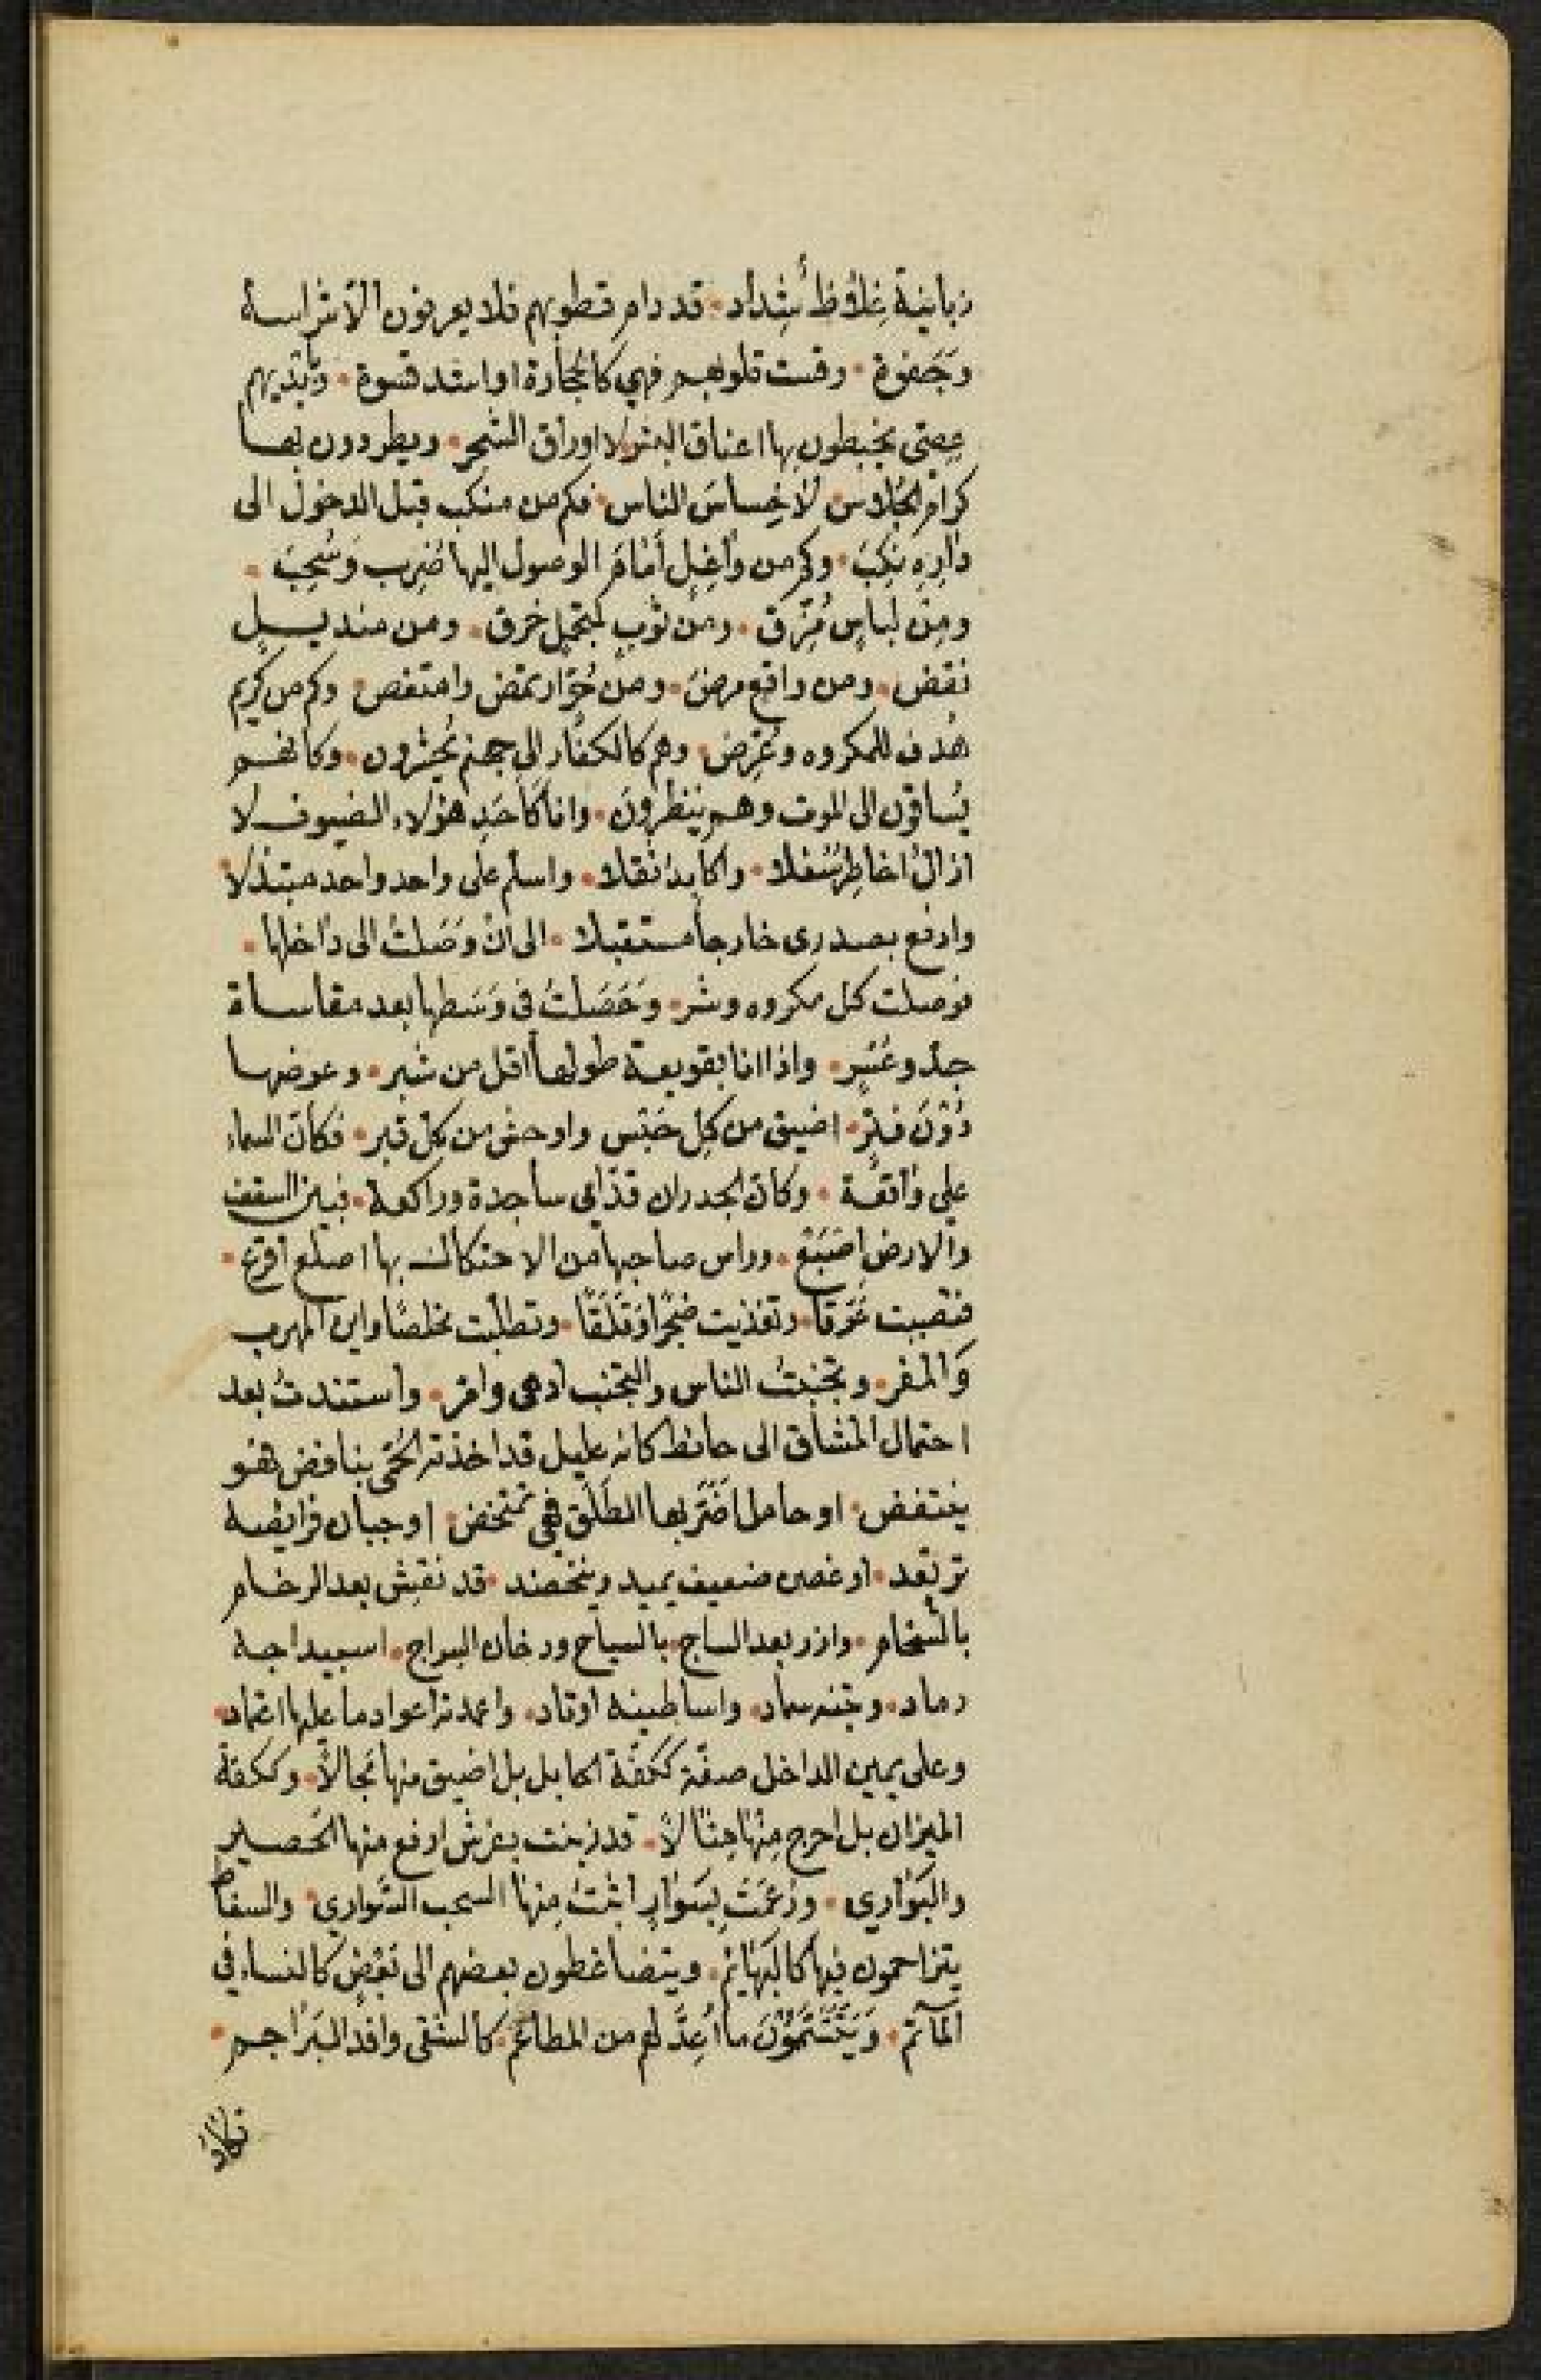 زبانية غِلاظ شِداد • قد دام قطوبهم فلا يعرفون الا شراسة
وَجَفوة • وقست قلوبهم فهي كالحجارة او اشد قسوة • وبأيديهم
عِصيّ يخبطون بها اعناق البشر لا اوراق الشجر • ويطردون بها
كرام الجُلاس لا خِساسَ الناس • فكم من منكب قبل الدخول الى
دارِهِ نُكِبَ • وكم من واغِلٍ أمام الوصول اليها ضُرِب وَسُحِبَ •
ومِن لباسٍ مُزِق • ومن ثوبِ لمتجمل خرق • ومن منديل
نقض • ومن واقع رضَ • ومن وامتعض • وكم من كريم
هُدف للمكروه وعُرِض • وهم كالكفار الى جهنم يُحشرون • وكانهم
يُساقون الى الموت وهم ينظرونَ • وانا كأحَدِ هؤلاء الضيوف لا
ازالُ اخاطِرُ سُفلا • واكابدُ ثقلا • واسلم على واحد واحد مبتذلا
وادفع بصدرى خارجاً مستقبلا • الى ان وَصَلتُ الى داخلها •
فوصلت كل مكروه وشر • وَحَصَلتُ فى وَسَطها بعد مقاساة
جهد وعُسْر • واذا انا بقويعة طولها اقل من شبر • وعرضها
دُوْنَ فِتْرٍ • اضيق من كل حَبْس واوحش من كل قبر • فكان السماء
على واقعة • وكان الجدران قدّامى ساجدة وراكعة • فبين السقف
والارض اصبَع • وراس صاحبها من الاحتكاك بها اصلع اقرع •
فتصببت عَرَقا • وتغذيت ضجَراً وَقَلَقًا • وتطلبت مخلصًا واين المهرب
وَالمفر • وتجنبتُ الناس والتجنب ادهى وامر • واستندتُ بعد
احتمال المشاق الى حائط كانه عليل قد اخذته الحُمّى بنافض فهو
ينتفض • او حامل اضَرّ بها الطَلْق فهى تمتخض • او جبان فرائصه
ترتعد • او غصن ضعيف يميد وينخضد • قد نقش بعد الرخام
بالسُّخام • وازر بعد الساج بالسياج ودخان السراج • اسبيداجه
رماد • وجصه سماد • واساطينه اوتاد • واعمدته اعواد ما عليها اعتماد •
وعلى يمين الداخل صفّة ككفّة الحابل بل اضيق منها مَجالاً • وككفة
الميزان بل احرج مِنها مِثالاً • قد زينت بفرش ارفع منها الحَصير
والبَوَاري • وزعمت بسوارٍ اثبتُ مِنها السحب السَّواري • والسفاط
يتزاحمون فيها كالبَهَائِم • ويتضاغطون بعضهم الى بَعْضٍ كالنساء في
المآتم • وَيَتَشَمَّمُوْنَ ما اُعِدَّ لهم من المطاعم • كالشقى وافد البَرَاجم •
تكاد